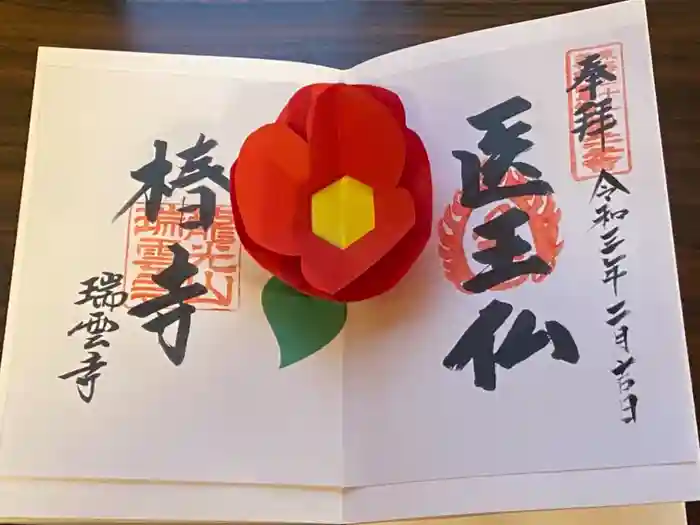 奉拝
令和三年二月吉日
医王仏
椿寺
龍光山
瑞雲寺
瑞雲寺